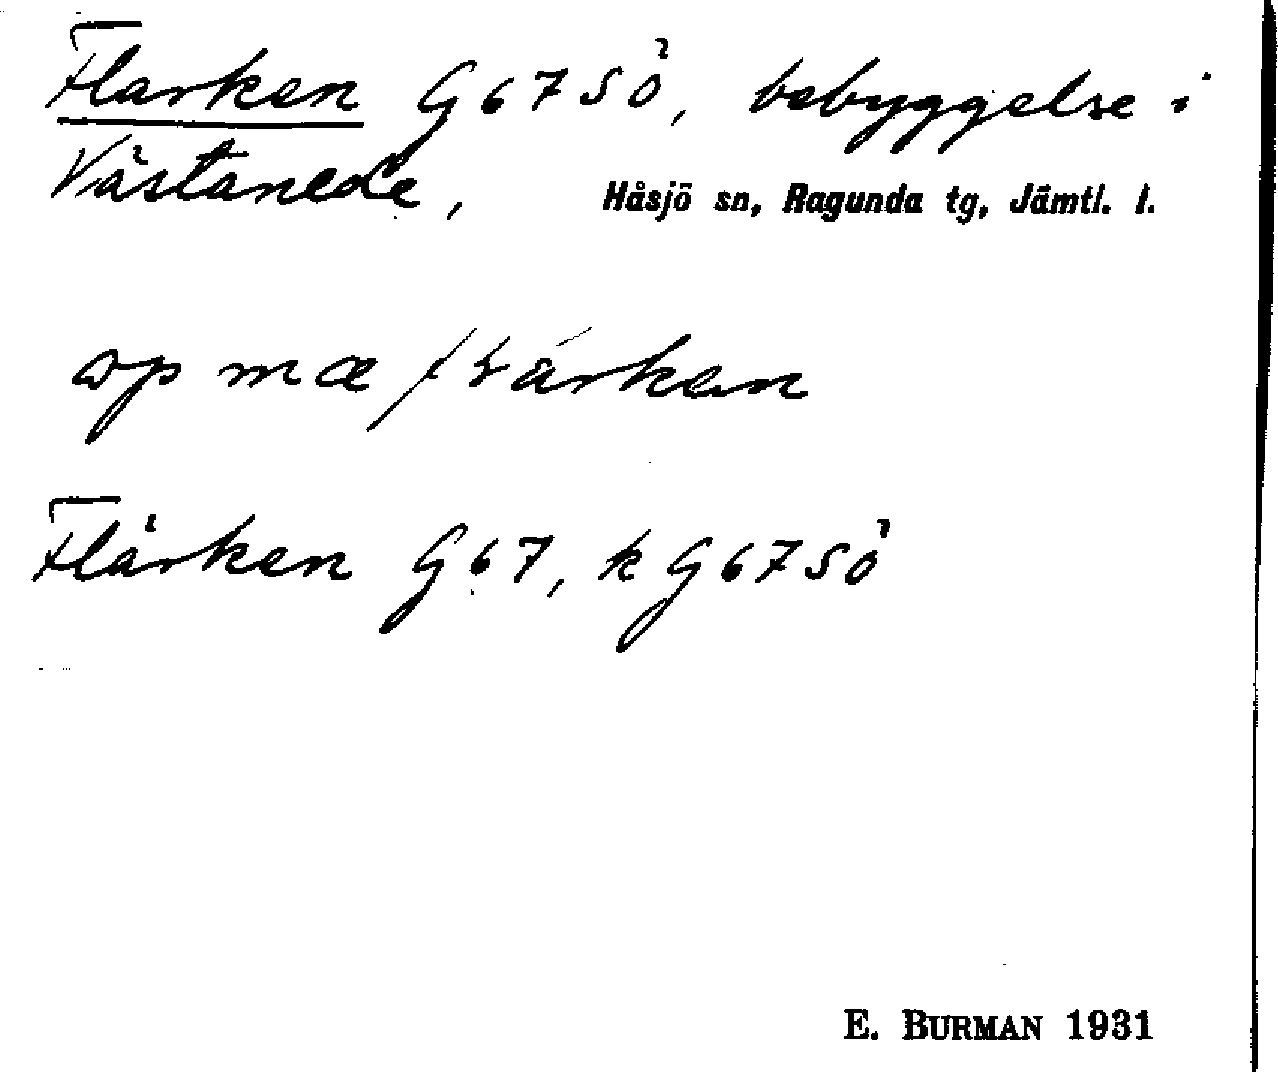 Flarken G67SÖ, bebyggelse i
Västanede, Håsjö sn, Ragunda tg, Jämtl. l.
op mæ
Flärken G67, k G67SÖ
E. BURMAN 1931